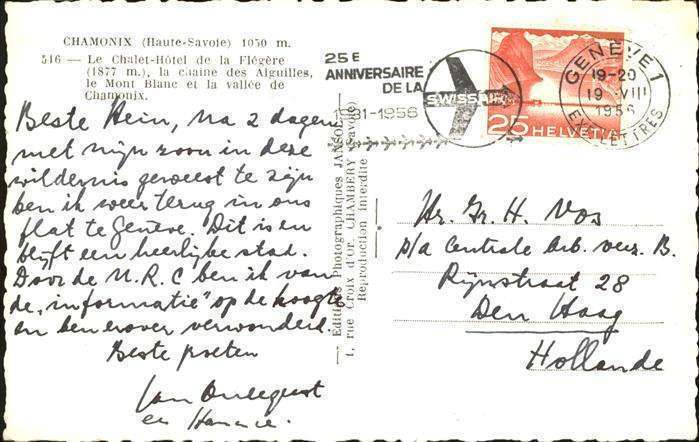 CHAMONIX (Haute-Savoie) 1050 m.
516 — Le Chalet-Hôtel de la Flégère
(1877 m.), la chaîne des Aiguilles,
le Mont Blanc et la vallée de
Chamonix.
Beste Hein, na 2 dagen
met mijn zoon in deze
wildernis geweest te zijn
ben ik weer terug in ons
flat te Genève. Dit is en
blijft een heerlijke stad.
Door de N.R.C ben ik van
de "informatie" op de hoogte
en ben erover verwonderd.
Beste groeten
Jan
en Hannie.
— Editions Photographiques JANSOL
1, rue Croix d'OR, CHAMBERY (Savoie)
Reproduction interdite
25E
ANNIVERSAIRE
DE LA
31-1956
SWISSAIR
GENÈVE 1
19-20
19 VIII
1956
EXP. LETTRES
25 HELVETIA
Hr. Gr. H. Vos
p/a Centrale Arb. verz. B.
Rijnstraat 28
Den Haag
Hollande